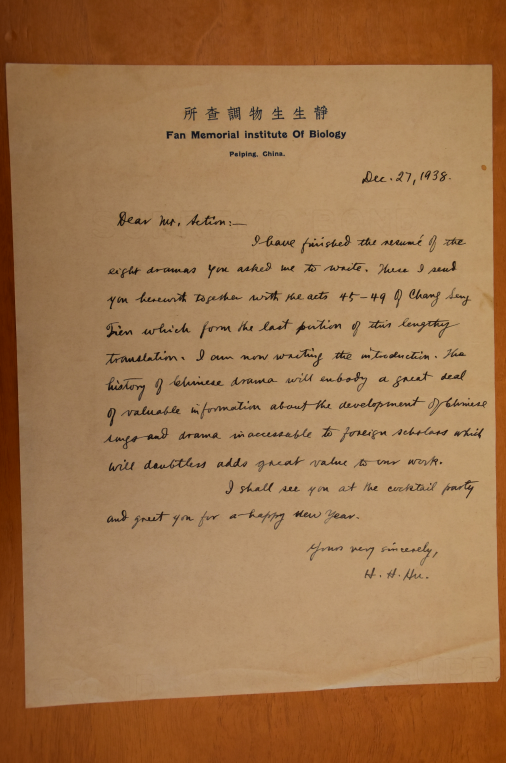 所查調物生生靜
Fan Memorial institute Of Biology
Peiping, China.
Dec. 27, 1938.
Dear Mr. Acton:—
I have finished the resumé of the
eight dramas you asked me to write. These I send
you herewith together with the acts 45-49 of Chang Seng
Tien which form the last portion of this lengthy
translation. I am now writing the introduction. The
history of Chinese drama will embody a great deal
of valuable information about the development of Chinese
songs and drama inaccessable to foreign scholars which
will doubtless adds great value to our work.
I shall see you at the cocktail party
and greet you for a happy New Year.
Yours very sincerely,
H. H. Hu.